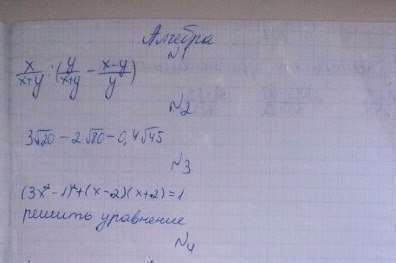 Алгебра
N1
x/(x+y) : (y/(x+y) - (x-y)/y)
N2
3√20 - 2√80 - 0,4√45
N3
(3x² - 1)² + (x-2)(x+2) = 1
решить уравнение
N4